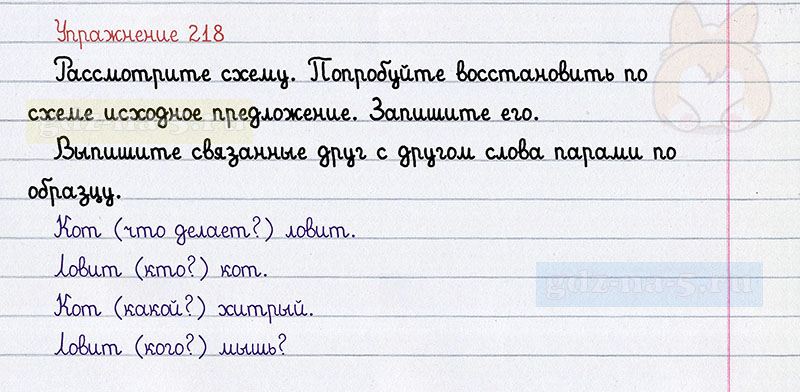 Упражнение 218
Рассмотрите схему. Попробуйте восстановить по
схеме исходное предложение. Запишите его.
Выпишите связанные друг с другом слова парами по
образцу.
Кот (что делает?) ловит.
Ловит (кто?) кот.
Кот (какой?) хитрый.
Ловит (кого?) мышь?
gdz-na-5.ru